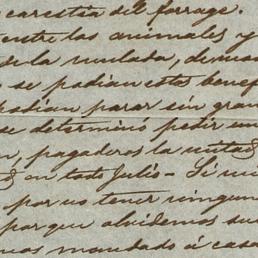 carestia del forrage.
entre los animales y
de la mulada, demas
se podian estos bene
podian parar sin gran
se determinó pedir un
pagaderos la mitad
en todo Julio - Si mi
por no tener ningun
porque olvidemos su
mos mandado á casa